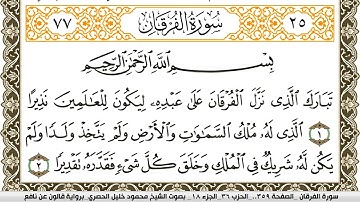 ٧٧ سُورَةُ الفُرْقَانِ ٢٥
بِسْمِ اللَّهِ الرَّحْمَٰنِ الرَّحِيمِ
تَبَارَكَ الَّذِى نَزَّلَ الْفُرْقَانَ عَلَىٰ عَبْدِهِۦ لِيَكُونَ لِلْعَالَمِينَ نَذِيرًا
١ الَّذِى لَهُۥ مُلْكُ السَّمَٰوَٰتِ وَالْأَرْضِ وَلَمْ يَتَّخِذْ وَلَدًا وَلَمْ
يَكُن لَّهُۥ شَرِيكٌ فِى الْمُلْكِ وَخَلَقَ كُلَّ شَىْءٍ فَقَدَّرَهُۥ تَقْدِيرًا ٢
سورة الفرقان _ الصفحة ٣٥٩_ الحزب ٣٦_ الجزء ١٨_ بصوت الشيخ محمود خليل الحصري_ برواية قالون عن نافع